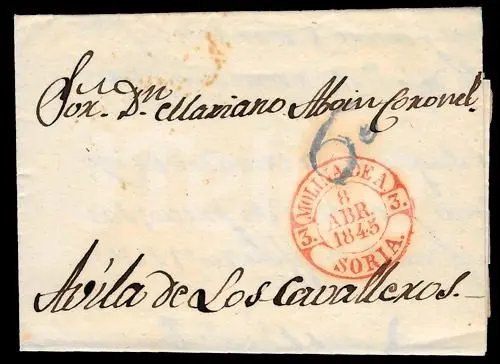 Sor. Dn. Mariano Aboin Coronel.
6s
MOLINA DE A
3. 3.
8
ABR.
1845
SORIA.
Avila de Los Cavalleros.